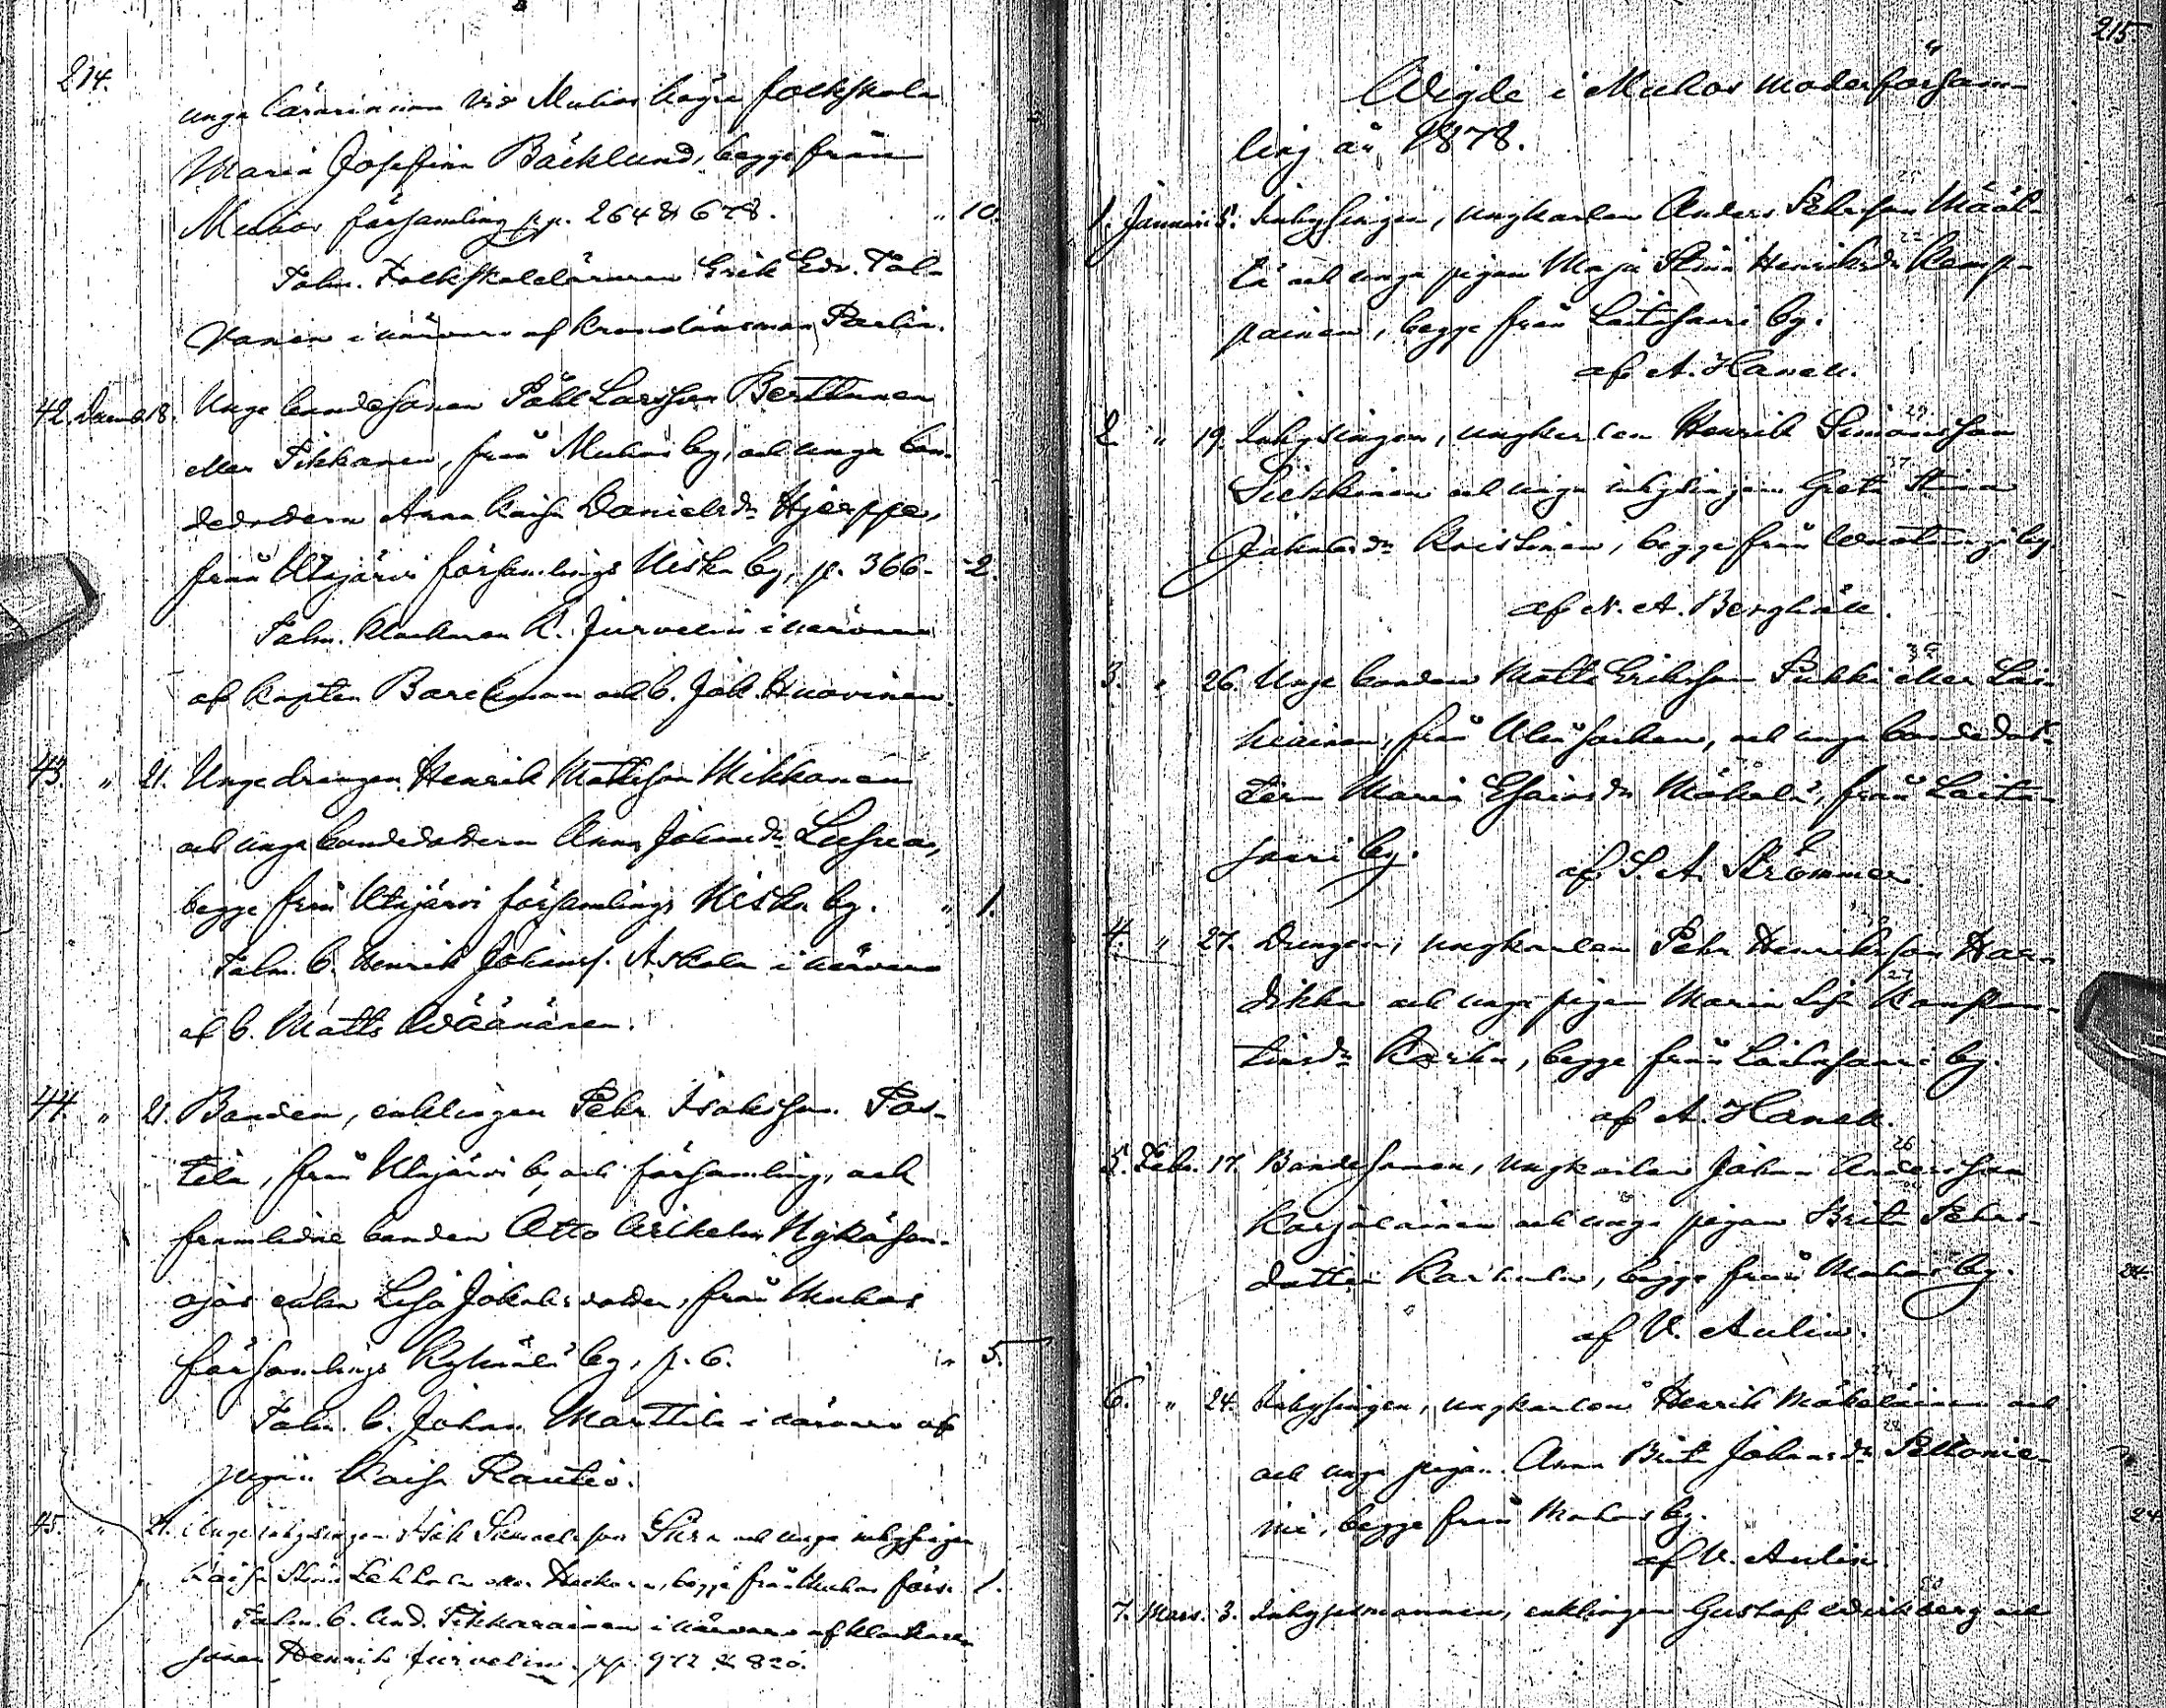 214.
unga lärarinnan vid Muhos högre folkskola
Maria Josefina Bäcklund, begge från
Muhos församling pp. 264 & 678. " 10.
Taln. Folkskoleläraren Erik Edv. Tol-
vanen i närvaro af Kronolänsman Parlin.
42. Decemb. 18. Unge bondesonen Påhl Larsson Berttunen
eller Tikkanen, från Muhos by, och unga bon-
dedottern Anna Kaisa Danielsdr Hjerppe,
från Utajärvi församlings Niska by, p. 366. - 2.
Taln. Klockaren K. Jurvelin i närvaro
af Kapten Barckman och b. Joh. Huovinen.
43. " 21. Unge drengen Henrik Mattsson Mikkonen
och unga bondedottern Anna Johansdr
begge från Utajärvi församlings Niska by. " 1.
Taln. b. Henrik Johanss. i närvaro
af b. Matts Wäänänen.
44. " 21. Bonden, enklingen Pehr Isaksson Pos-
tila, från Utajärvi by och församling, och
framlidne bonden Otto Wilhelm
enka Lisa Jakobsdotter, från Muhos
församlings Kylmälä by, p. 6. " 5.
Taln. b. Johan Marttila i närvaro af
pigan Kaisa Rautio.
45. " 21. Unge inhysingen Isak Samuelsson och unga inhysingen
Kaisa Stina begge från Muhos förs. 1.
Taln. b. And. Tikkarainen i närvaro af klockare
sonen Henrik Jurvelin. pp. 972 & 820.
215
Wigde i Muhos moderförsam-
ling år 1878.
1. Januari 5. Inhysingen, ungkarlen Anders Pehrsson Määt-
tä och unga pigan Maja Stina Henriksdr Kemp-
painen, begge från Laitasaari by.
af A. Hanell.
2 " 19. Inhysingen, ungkarlen Henrik Simonsson
Siekkinen och unga inhysingen Greta Stina
Jakobsdr Kristinen, begge från by.
af N. A. Berghäll.
3. " 26. Unge bonden Matts Eriksson Pukki eller Loi-
från Uleå socken, och unga bondedot-
tern Maria Esaiasdr Mäkelä, från Laita-
saari by. af S. A. Strömmer.
4. " 27. Drengen, ungkarlen Pehr Henriksson Har-
dikka och unga pigan Maria Lisa Konstan-
tinsdr Karhu, begge från Laitasaari by.
af A. Hanell.
5. Febr. 17. Bondesonen, ungkarlen Johan Andersson
Karjalainen och unga pigan Brita Pehrs-
dotter begge från Muhos by. 24
af V. Aulin.
6. " 24. Inhysingen, ungkarlen Henrik Mäkeläinen och
och unga pigan Anna Brita Johansdr Peltonie-
mi, begge från Muhos by. 24
af V. Aulin.
7. Mars. 3. Inhysesmannen, enklingen Gustaf Wickberg och